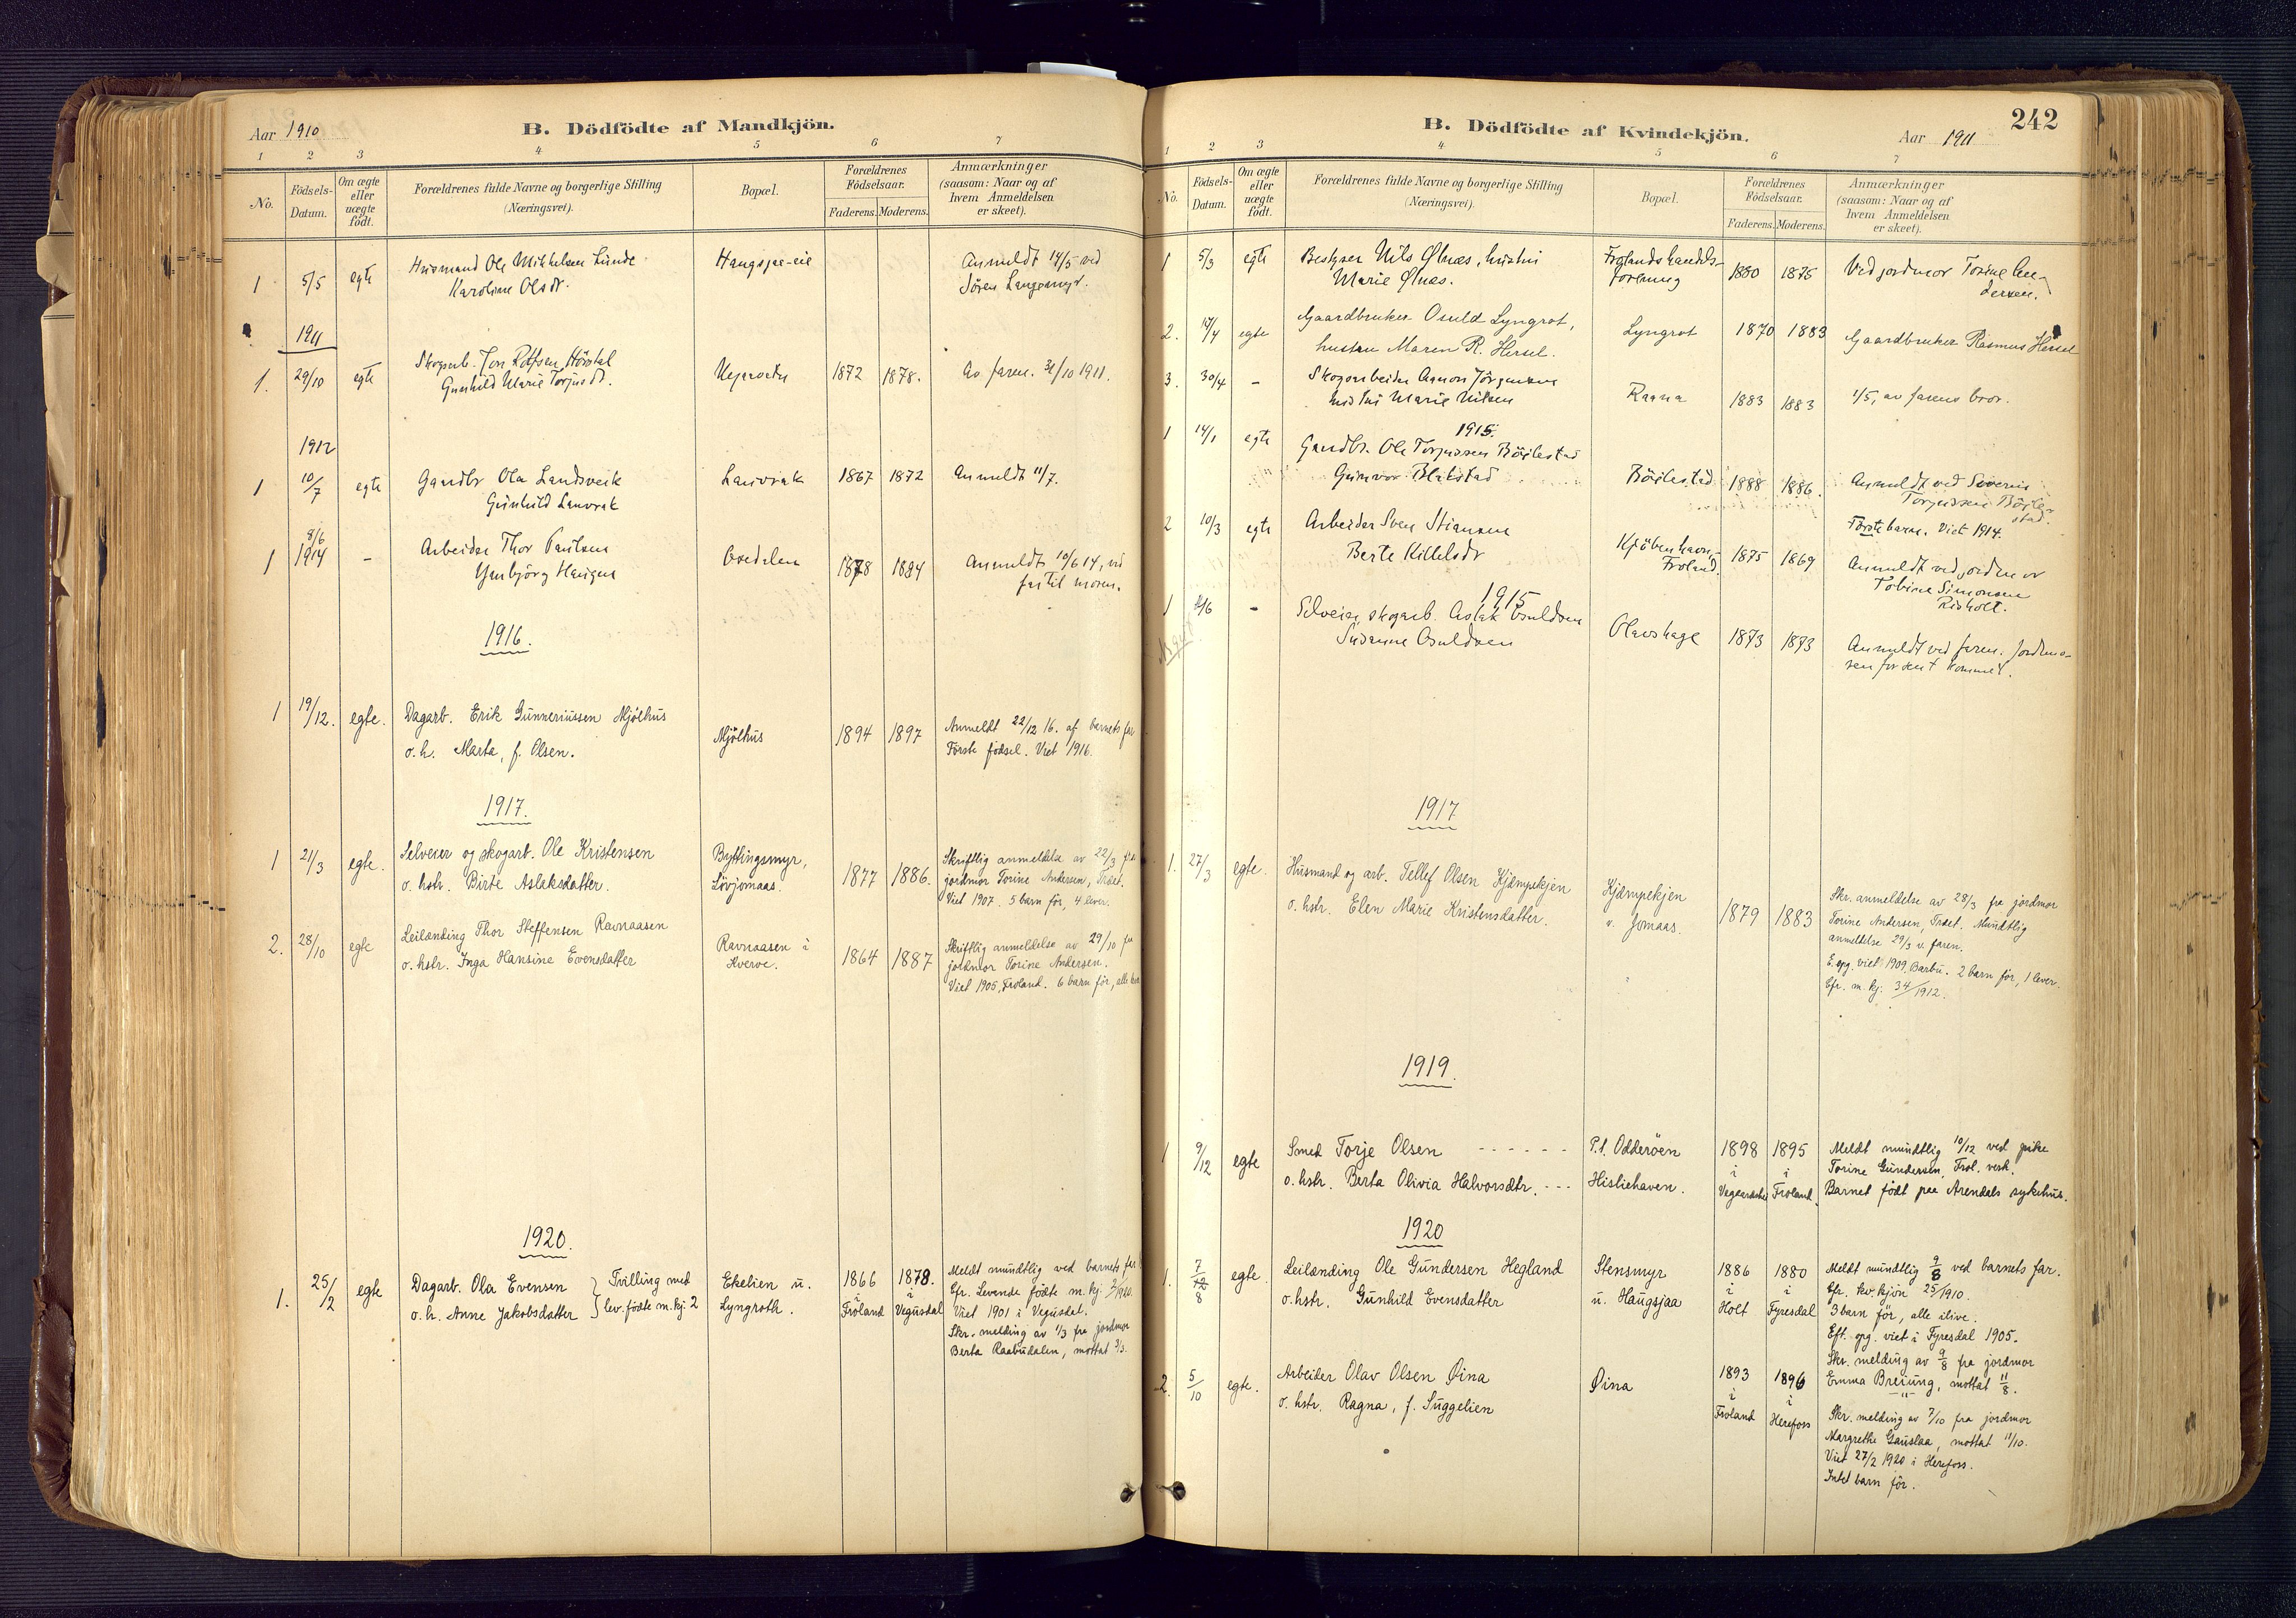 Aar 1910
B. Dödfödte af Mandkjön.
1 2 3 4 5 6 7
No.
Födsels-
Datum.
Om ægte
eller
uægte
födt.
Forældrenes fulde Navne og borgerlige Stilling
(Næringsvei).
Bopæl.
Forældrenes
Födselsaar.
Faderens. Moderens.
Anmærkninger
(saasom: Naar og af
hvem Anmeldelsen
er skeet).
1 5/5 egte Husmand Ole Mikkelsen Lunde
Karoline Olsdr.
Haugsjaa-eie
Anmeldt 14/5 ved
Sören Langemyr.
1911
1. 29/10 egte Skogarb.
Gunhild Marie Torjusd.
1872 1878. Av faren. 31/10 1911.
1912
1 10/7 egte Gaardbr Ola Landsverk
Gunhild Lanvrak
Lanvrak 1867 1872 Anmeldt 11/7.
8/6
1 1914 - Arbeider Thor Paulsen
Haugen
Osedalen 1878 1884 Anmeldt 10/6 14, ved
moren.
1916.
1 19/12. egte. Dagarb. Erik Gunneriussen Mjölhus
o. h. Marta, f. Olsen.
Mjölhus 1894 1897
Anmeldt 22/12 16. af barnets far
Förste födsel. Viet 1916.
1917.
1 21/3 egte. Selveier og skogarb. Ole Kristensen
o. hstr. Birte Aslaksdatter.
Byttingsmyr,
Lövjomaas.
1877 1886.
Skriftlig anmeldelse av 22/3 fra
jordmor Torine Andersen, Trået.
Viet 1907. 5 barn för, 4 lever.
2. 28/10 egte Leilænding Thor Steffensen Ravnaasen
o. hstr. Inga Hansine Evensdatter
Ravnaasen i
Hverve.
1864 1887
Skriftlig anmeldelse av 29/10 fra
jordmor Torine Andersen.
Viet 1905, Froland. 6 barn för, alle
1920.
1. 25/2 egte Dagarb. Ola Evensen
o. h. Anne Jakobsdatter
Tvilling med
lev. födte m.kj. 2
Ekelien u.
Lyngroth.
1866 i Froland
1878. i Vegusdal
Meldt mundtlig ved barnets far
Cfr. Levende födte m. kj. 2/1920.
Viet 1901 i Vegusdal.
Skr. melding av 1/3 fra jordmor
Berta Raabudalen, mottat 3/3.
B. Dödfödte af Kvindekjön.
Aar 1911
242
1 2 3 4 5 6 7
No.
Födsels-
Datum.
Om ægte
eller
uægte
födt.
Forældrenes fulde Navne og borgerlige Stilling
(Næringsvei).
Bopæl.
Forældrenes
Födselsaar.
Faderens. Moderens.
Anmærkninger
(saasom: Naar og af
hvem Anmeldelsen
er skeet).
1 5/3 egte Bestyrer Nils Ølnæs, hustru
Marie Ølnæs.
Frolands handels-
forening
1880 1875 Ved jordmor Torine An-
dersen.
2. 17/4 egte Gaardbruker Osuld Lyngrot,
hustru Maren R. Hersel.
Lyngrot 1870 1883 Gaardbruker Rasmus Hersel
3. 30/4 - Skogarbeider Aanon Jörgensen
hustru Marie Nilsen
Raana 1883 1883 1/5, av farens bror.
1915.
1 14/1 egte Gaardbr. Ole Torjussen Böilestad
Gunvor Blakstad
Böilestad 1888 1886. Anmeldt ved Severin
Torjussen Böile-
stad.
Förste barn. Viet 1914.
2 10/3 egte Arbeider Sven Stiansen
Berte Kittelsdr
Kjöbenhavn,
Froland.
1875 1869 Anmeldt ved jordmor
Tobine Simonsen
Risholt.
1915
1 - Selveier, skogarb. Aslak Osuldsen
Susanne Osuldsen
Olavshage 1873 1873 Anmeldt ved faren. Jordmo-
ren for sent kommet.
1917
1. 27/3 egte. Husmand og arb. Tellef Olsen Kjæmpekjen
o. hstr. Elen Marie Kristensdatter.
Kjæmpekjen
v. Jomaas.
1879 1883
Skr. anmeldelse av 28/3 fra jordmor
Torine Andersen, Trået. Mundtlig
anmeldelse 29/3 v. faren.
E. opg. viet 1909, Barbu. 2 barn för, 1 lever.
Cfr. m. kj. 34/1912.
1919.
1 9/12 egte Smed Torje Olsen - - - - - -
o. hstr. Berta Olivia Halvorsdtr. - - -
P.t. Odderöen
Hisliehaven.
1898 i
1895 i Froland.
Meldt mundtlig 10/12 ved pike
Torine Gundersen, Frol. verk.
Barnet födt paa Arendals sykehus.
1920
1. 7/8 egte. Leilænding Ole Gundersen Hegland
o. hstr. Gunhild Evensdatter
Stensmyr
u. Haugsjaa
1886 i Holt
1880 i Fyresdal
Meldt mundtlig 9/8 ved barnets far.
Cfr. kv. kjön 25/1910.
3 barn för, alle ilive.
Eft. opg. viet i Fyresdal 1905.
Skr. melding av 9/8 fra jordmor
Emma Breiung, mottat 11/8.
2. 5/10 egte. Arbeider Olav Olsen Øina
o. hstr. Ragna, f. Suggelien
Øina
1893 i Froland
1896 i Herefoss
Skr. melding av 7/10 fra jordmor
Margrethe Gauslaa, mottat 11/10.
Viet 27/2 1920 i Herefoss.
Intet barn för.